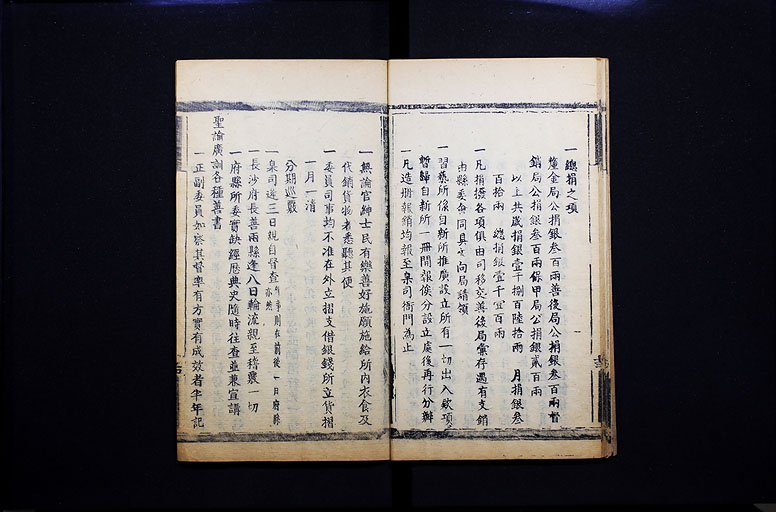 一總捐之項
釐金局公捐銀叁百兩善後局公捐銀叁百兩督
銷局公捐銀叁百兩保甲局公捐銀貳百兩
以上共歲捐銀壹千捌百陸拾兩 月捐銀叁
百拾兩 總捐銀壹千百兩
一凡捐撥各項俱由司移交善後局彙存遇有支銷
由縣委會同具文向局請領
一習藝所係自新所推廣設立所有一切出入欵項
暫歸自新所一冊開報俟分設立處後再行分辦
一凡造册報銷均報至臬司衙門為止
一無論官紳士民有樂善好施願施給所內衣食及
代銷貨物者悉聽其便
一委員司事均不准在外立摺支借銀錢所立貨摺
一月一清
分期巡嚴
一臬司逢三日親自督查有事則在前後一日府縣亦然
一長沙府長善兩縣逢八日輪流親至稽嚴一切
一府縣所委實缺經歷典史隨時往查並兼宣講
聖諭廣訓各種善書
一正副委員如察其督率有方實有成效者半年記